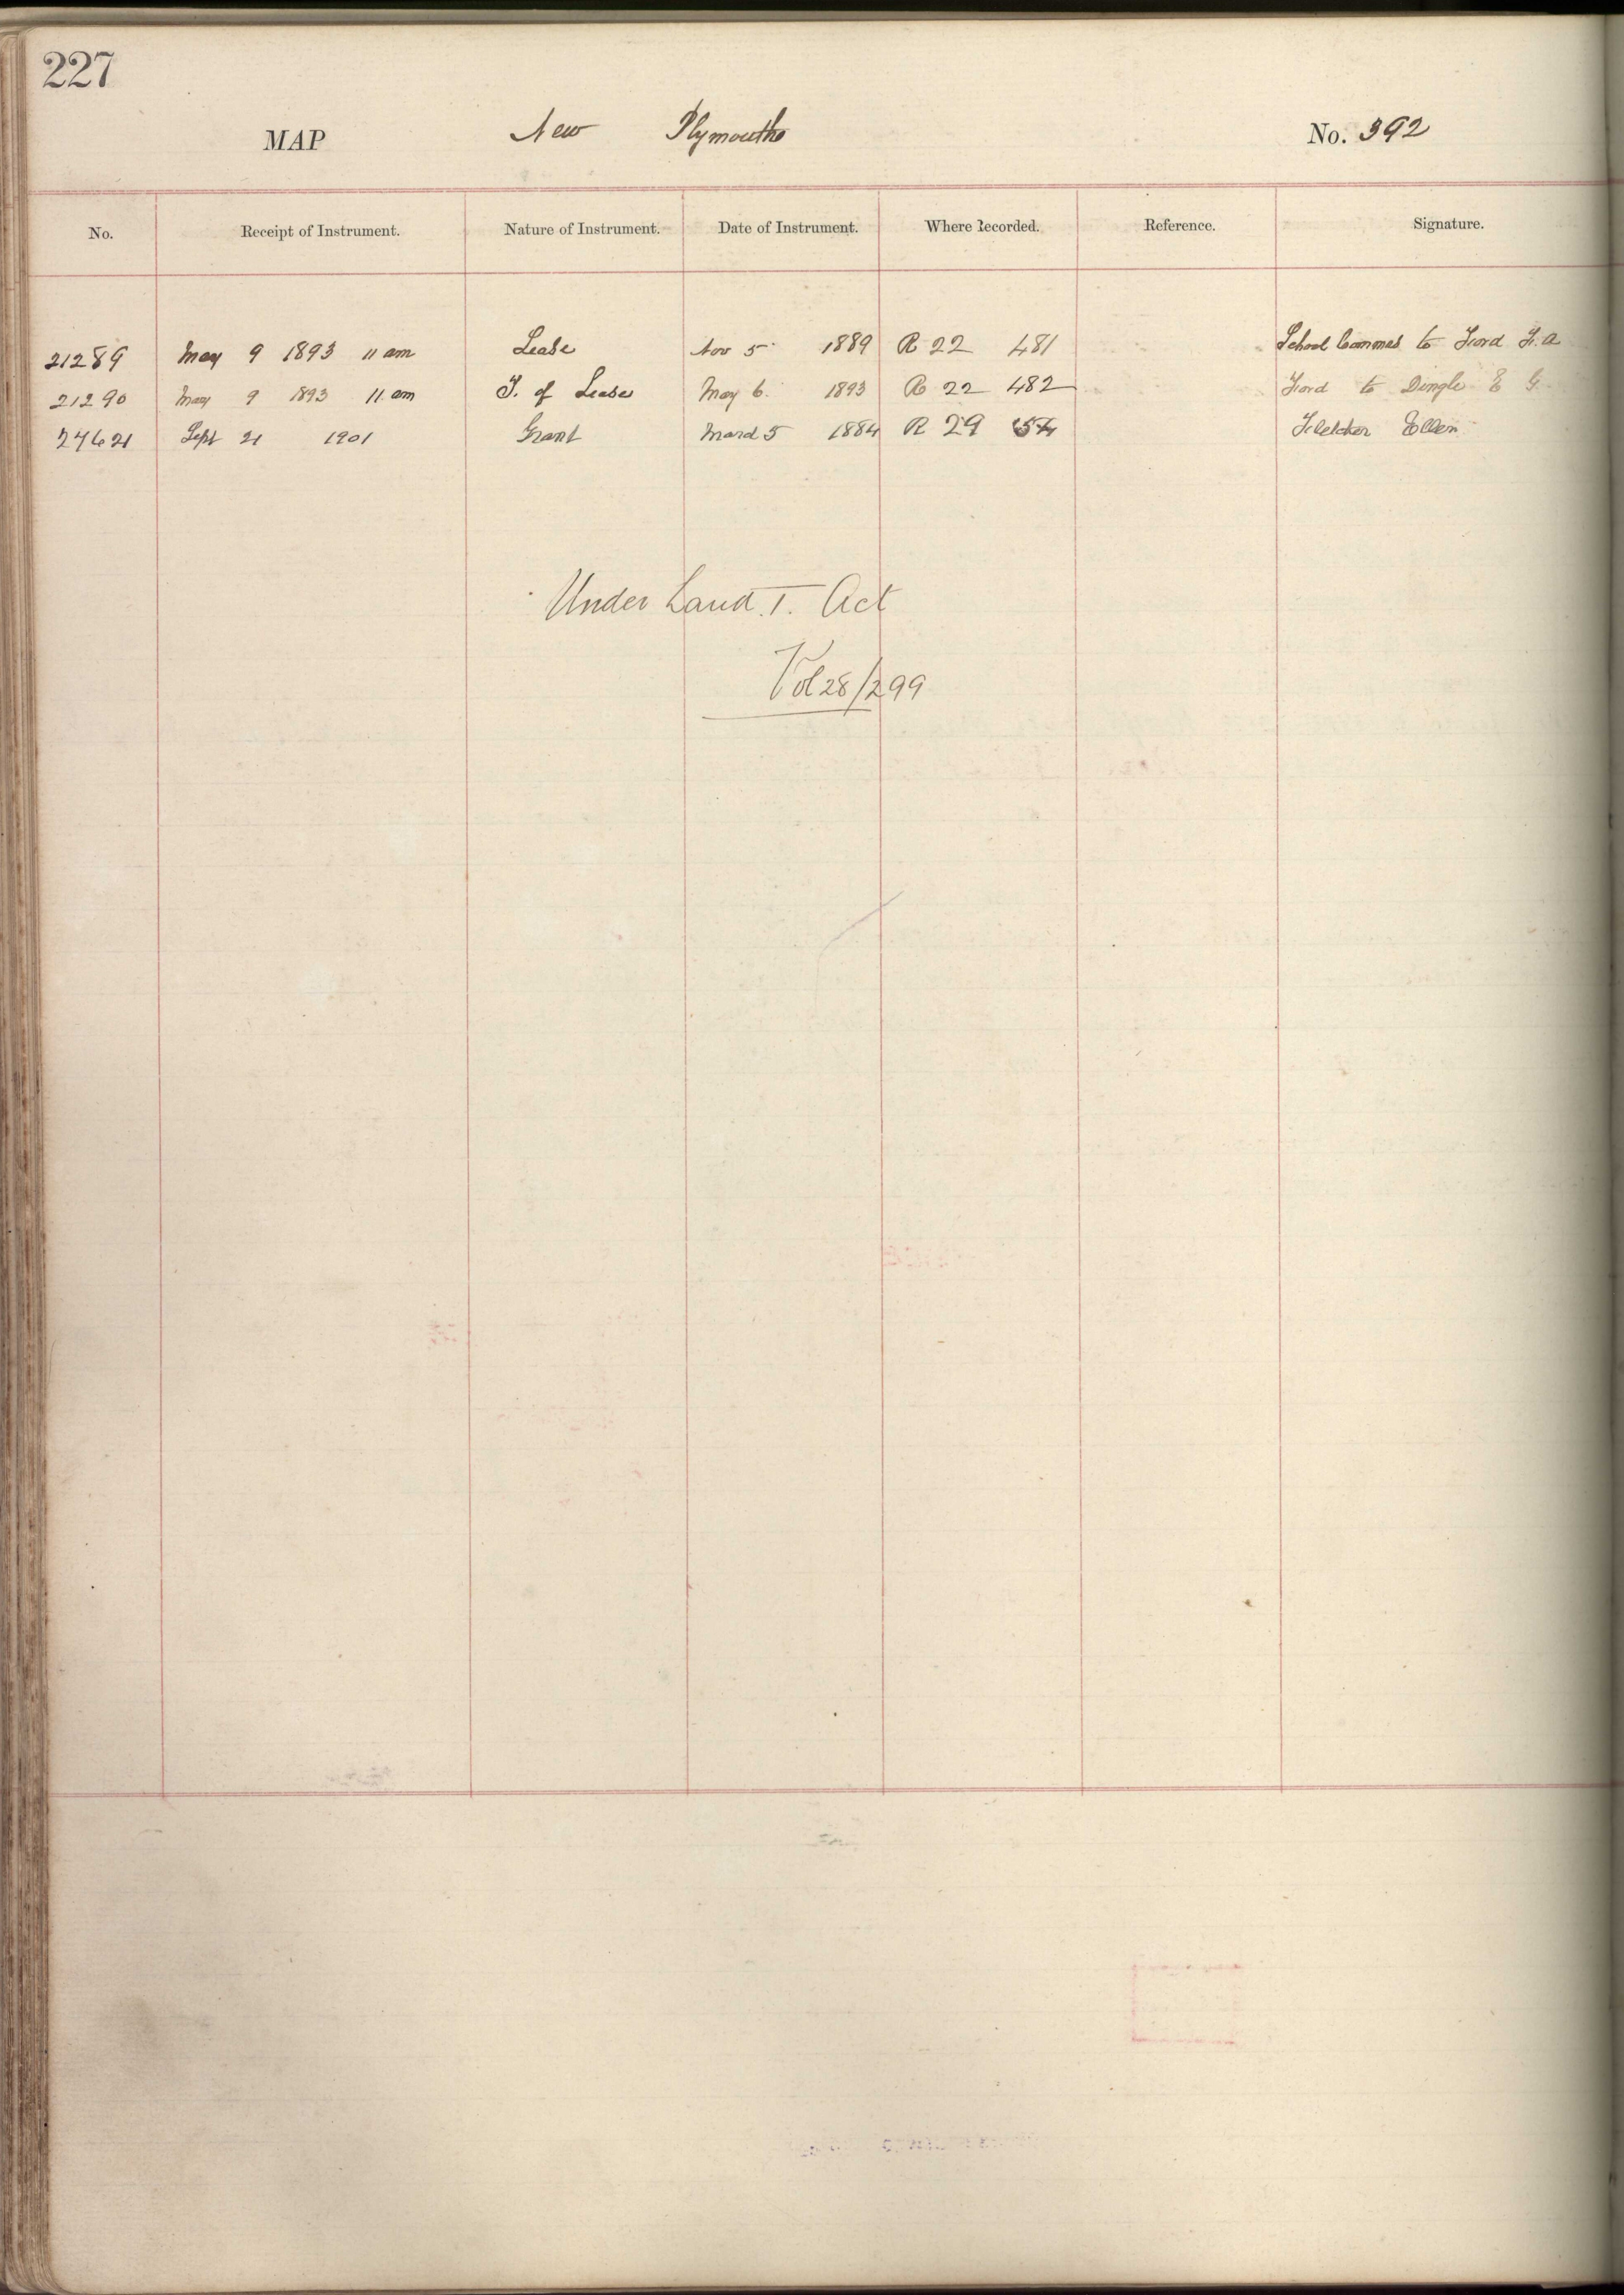 227
MAP New Plymouth No. 392
No. Receipt of Instrument. Nature of Instrument. Date of Instrument. Where Recorded. Reference. Signature.
21289 May 9 1893 11 am Lease Nov 5 1889 R 22 481 School Commrs to Ford F. A
21290 May 9 1893 11 am T. of Lease May 6 1893 R 22 482 Ford to Dingle E G
24621 Sept 21 1901 Grant 5 1884 R 29 Ellen
Under Land T. Act
Vol 28/299